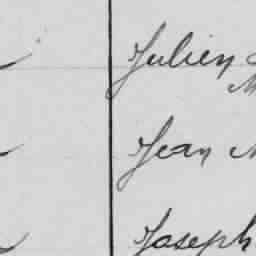 Julien
Jean
Joseph